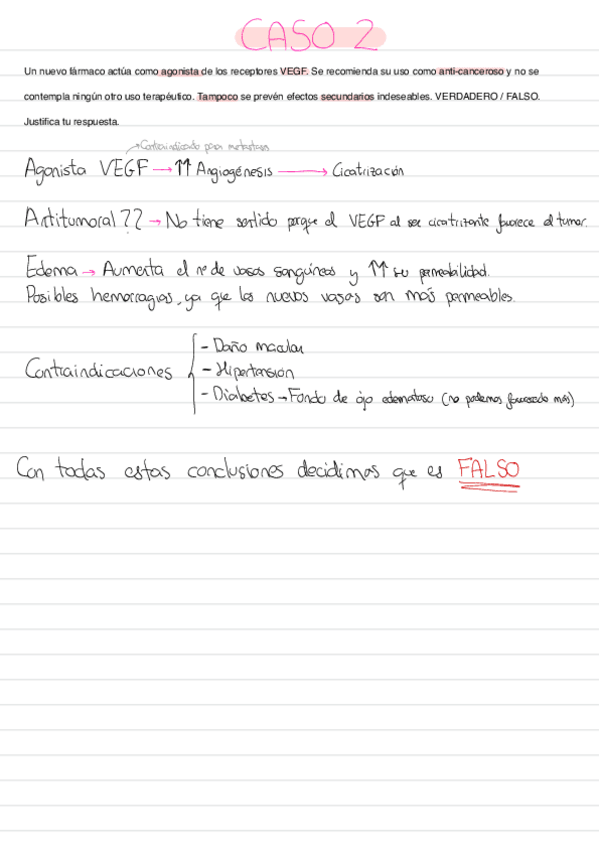 CASO 2
Un nuevo fármaco actúa como agonista de los receptores VEGF. Se recomienda su uso como anti-canceroso y no se
contempla ningún otro uso terapéutico. Tampoco se prevén efectos secundarios indeseables. VERDADERO / FALSO.
Justifica tu respuesta.
→Contraindicado para metastasis
Agonista VEGF → ↑↑ Angiogénesis → Cicatrización
Antitumoral?? → No tiene sentido porque el VEGF al ser cicatrizante favorece al tumor.
Edema → Aumenta el nº de vasos sanguíneos y ↑↑ su permeabilidad.
Posibles hemorragias, ya que los nuevos vasos son más permeables.
Contraindicaciones
- Daño macular
- Hipertensión
- Diabetes → Fondo de ojo edematoso (no podemos favorecerlo más)
Con todas estas conclusiones decidimos que es FALSO